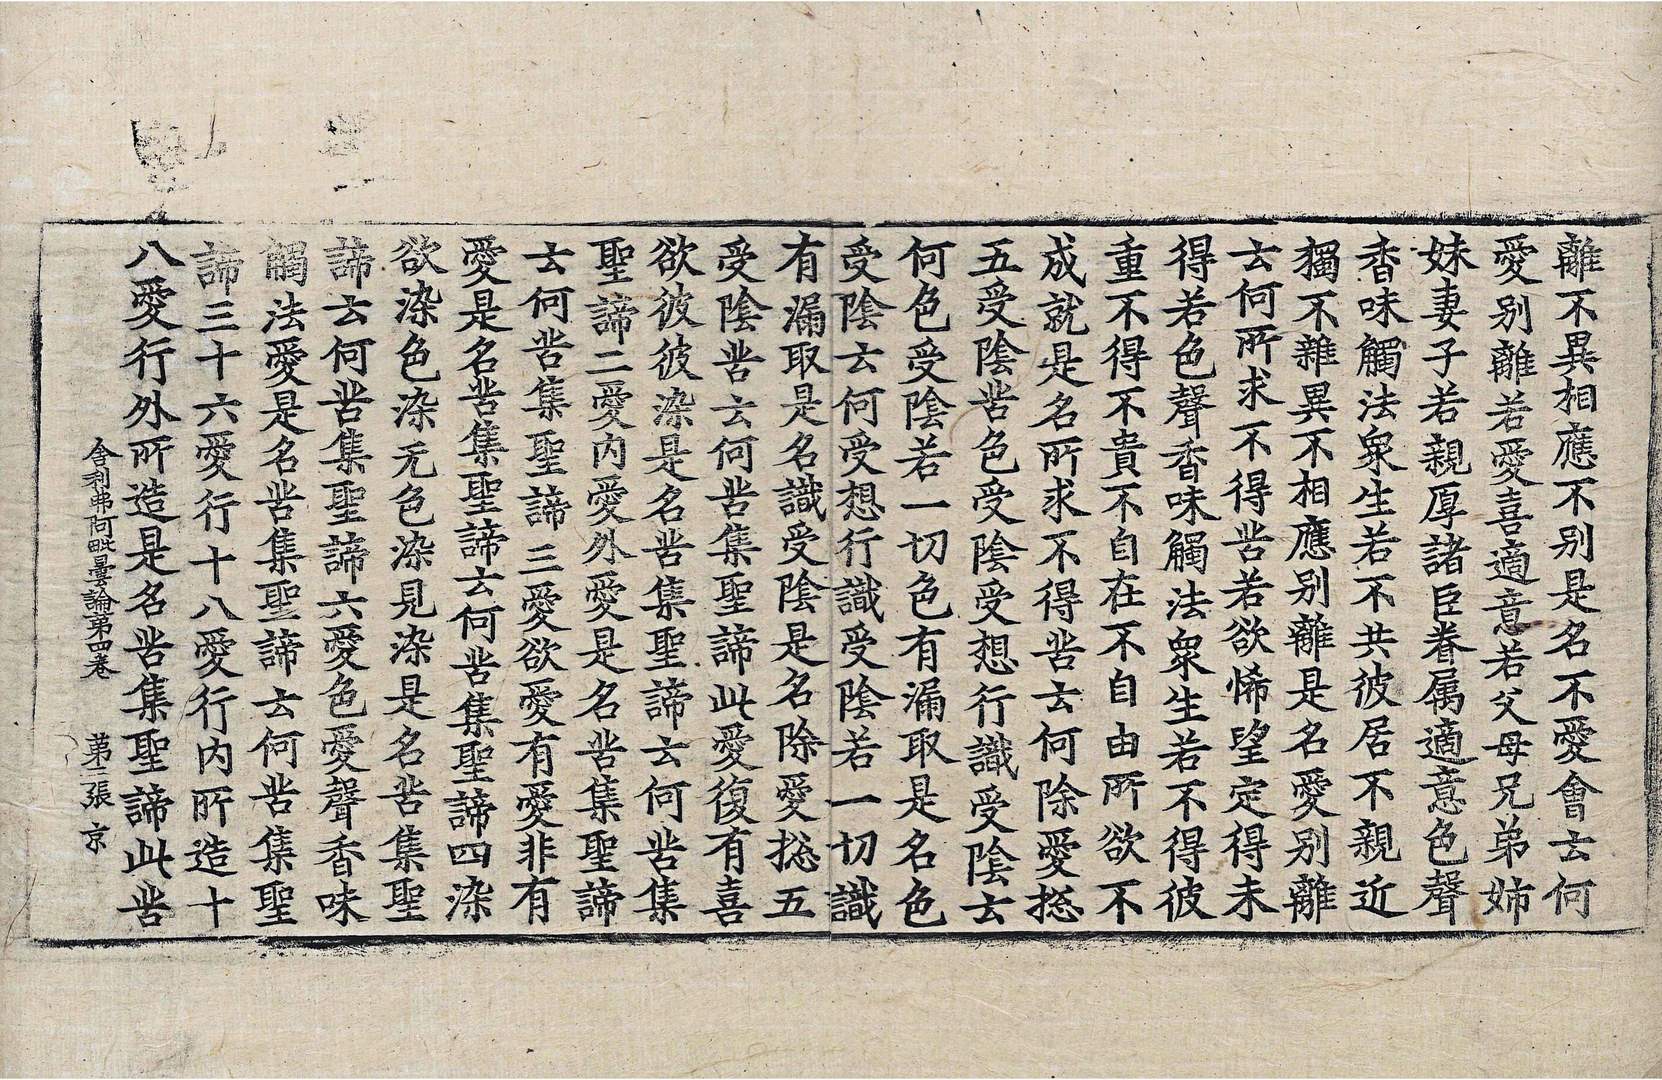 離不異相應不別是名不愛會去何
愛別離若愛喜適意若父母兄弟姉
妹妻子若親厚諸臣眷属適意色聲
香味觸法衆生若不共彼居不親近
獨不雜異不相應別離是名愛別離
去何所求不得苦若欲悕望定得未
得若色聲香味觸法衆生若不得彼
重不得不貴不自在不自由所欲不
成就是名所求不得苦去何除愛捴
五受陰苦色受陰受想行識受陰去
何色受陰若一切色有漏取是名色
受陰去何受想行識受陰若一切識
有漏取是名識受陰是名除愛捴五
受陰苦去何苦集聖諦此愛復有喜
欲彼彼染是名苦集聖諦去何苦集
聖諦二愛內愛外愛是名苦集聖諦
去何苦集聖諦三愛欲愛有愛非有
愛是名苦集聖諦去何苦集聖諦四染
欲染色染无色染見染是名苦集聖
諦去何苦集聖諦六愛色愛聲香味
觸法愛是名苦集聖諦去何苦集聖
諦三十六愛行十八愛行内所造十
八愛行外所造是名苦集聖諦此苦
舍利弗阿毗曇論第四卷　第三張　京